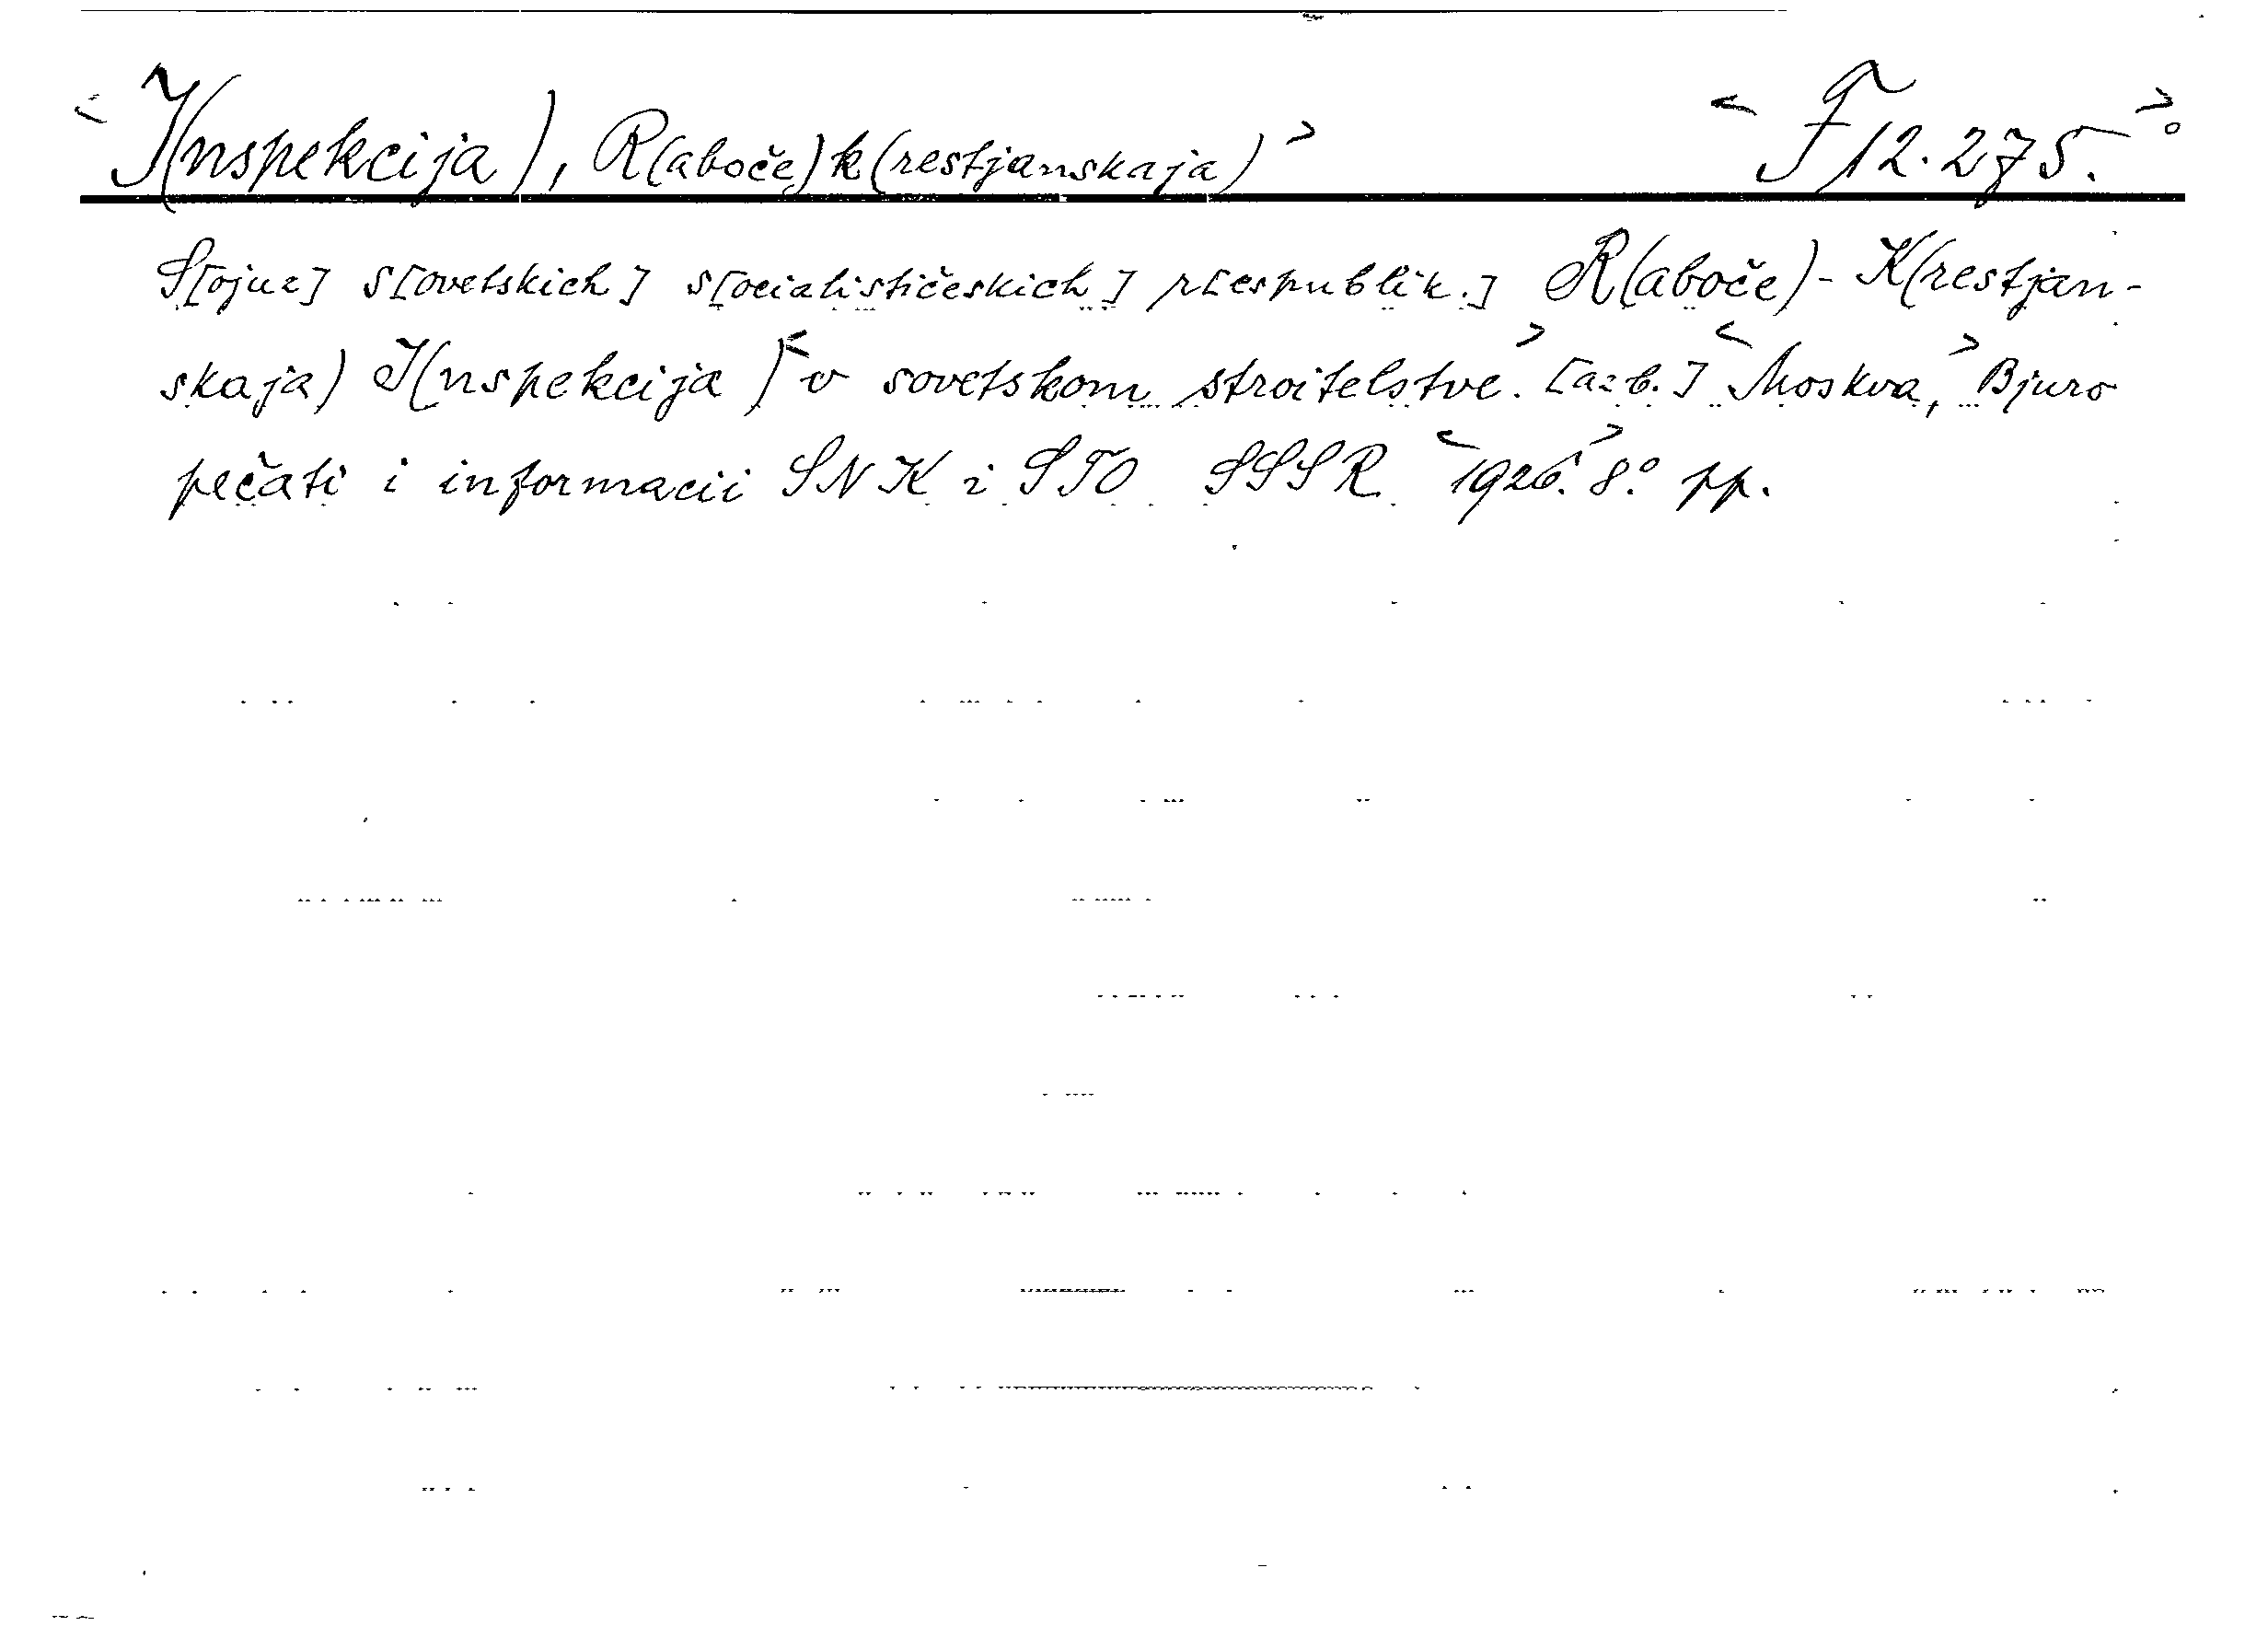 < I(nspekcija), R(aboče)k(restjanskaja) > < F 12.275. >°
S[ojuz] s[ovetskich] s[ocialističeskich] r[espublik.] R(aboče)-K(restjan-
skaja) I(nspekcija) < v sovetskom stroitelstve. > [azb.] < Moskva, > Bjuro
pečati i informacii SNK i STO SSSR < 1926. > 8.° pp.